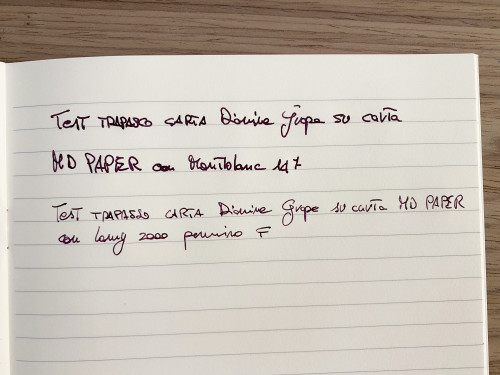 Test TRAPASSO CARTA Diamine Grape su carta
MD PAPER con Montblanc 147
Test TRAPASSO CARTA Diamine Grape su carta MD PAPER
con Lamy 2000 pennino F